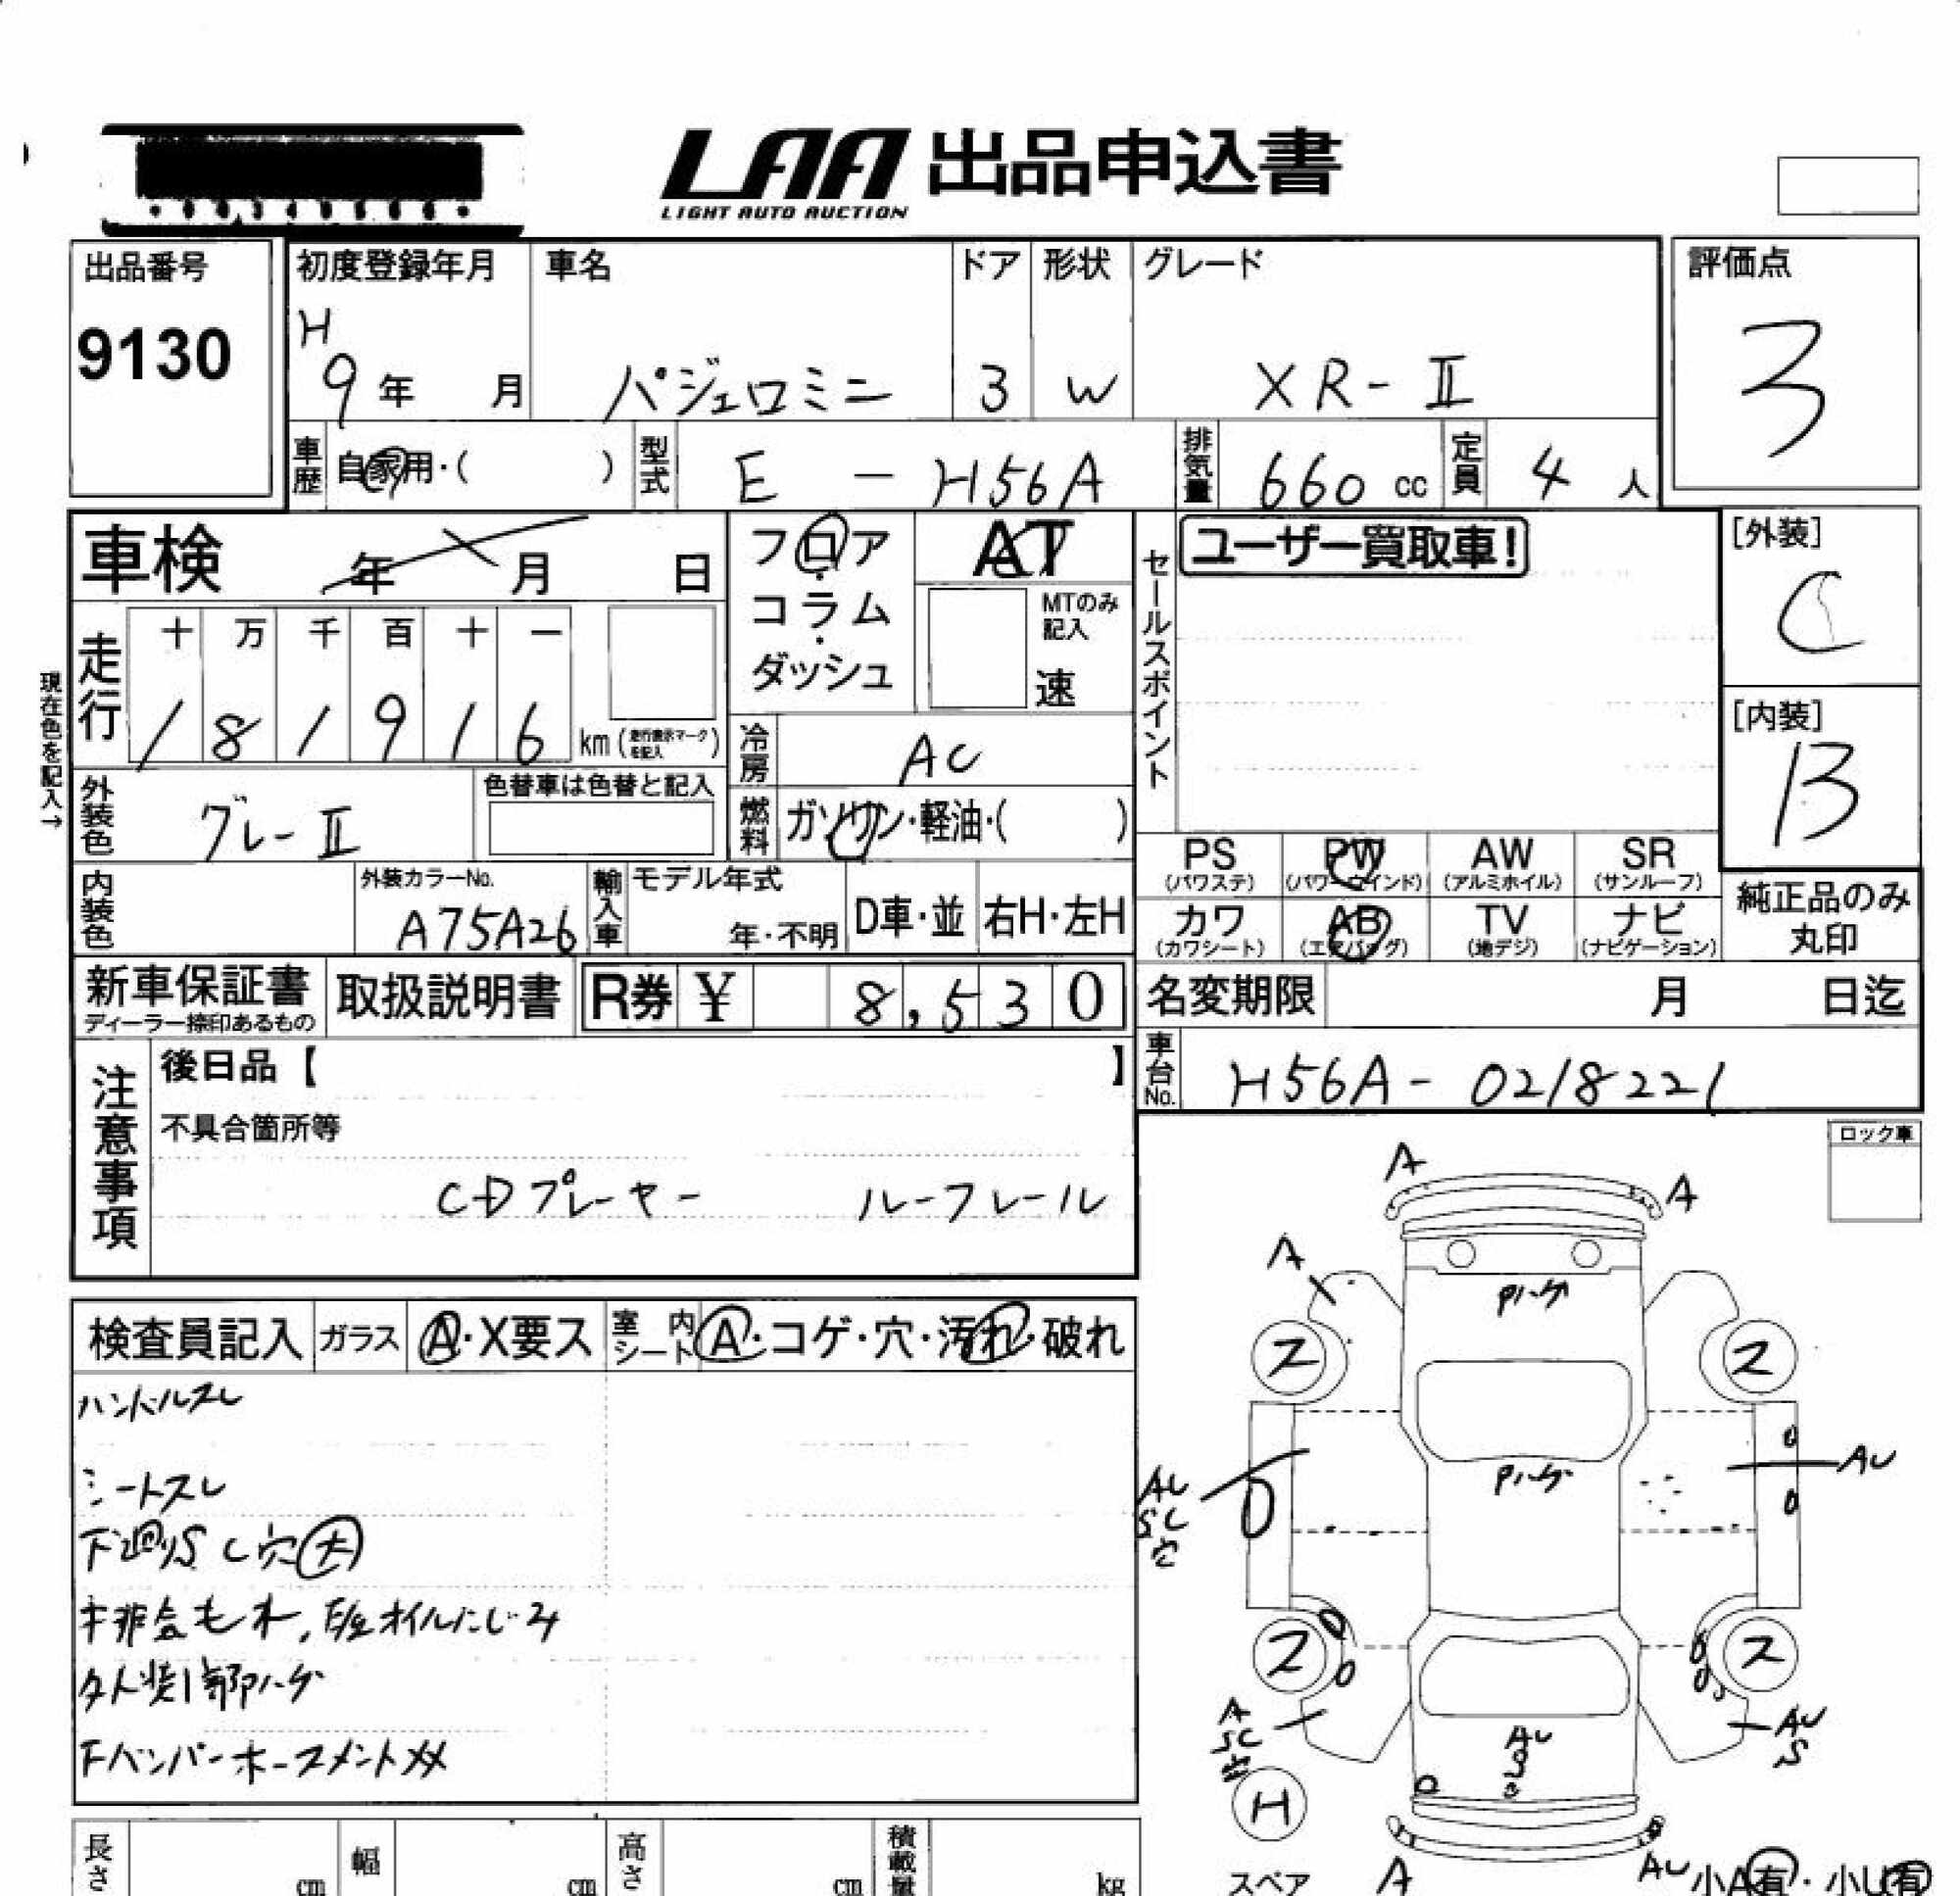 LAA 出品申込書
LIGHT AUTO AUCTION
出品番号
9130
初度登録年月
H
9年 月
車名
パジェロミニ
ドア
3
形状
W
グレード
XR-Ⅱ
評価点
3
車歴 自家用・( )
型式 E - H56A
排気量 660 cc
定員 4 人
車検 年 月 日
フロア・コラム・ダッシュ
AT
MTのみ記入
速
セールスポイント
ユーザー買取車!
[外装]
C
[内装]
B
現在色を記入→
走行
十 万 千 百 十 一
1 8 1 9 1 6 km (走行表示マークを記入)
冷房 AC
外装色 グレーⅡ
色替車は色替と記入
燃料 ガソリン・軽油・( )
PS (パワステ) PW (パワーウインド) AW (アルミホイル) SR (サンルーフ)
カワ (カワシート) AB (エアバッグ) TV (地デジ) ナビ (ナビゲーション)
純正品のみ丸印
内装色
外装カラーNo.
A75A26
輸入車
モデル年式
年・不明
D車・並
右H・左H
新車保証書
ディーラー捺印あるもの
取扱説明書
R券 ¥ 8,530
名変期限 月 日迄
車台No. H56A-0218221
注意事項
後日品【 】
不具合箇所等
CDプレーヤー ルーフレール
ロック車
検査員記入 ガラス A・X要ス 室内シート A・コゲ・穴・汚れ・破れ
ハンドルスレ
シートスレ
下廻りS C穴大
オイルにじみ
外装1部ハゲ
FバンパーホースメントXX
A
A
A
Pハゲ
2
2
Pハゲ
AU
SC
穴
AU
2
2
A
SC
AU
S
AU
S
H
スペア
A
AU
小A有・小U有
長さ cm
幅 cm
高さ cm
積載量 kg